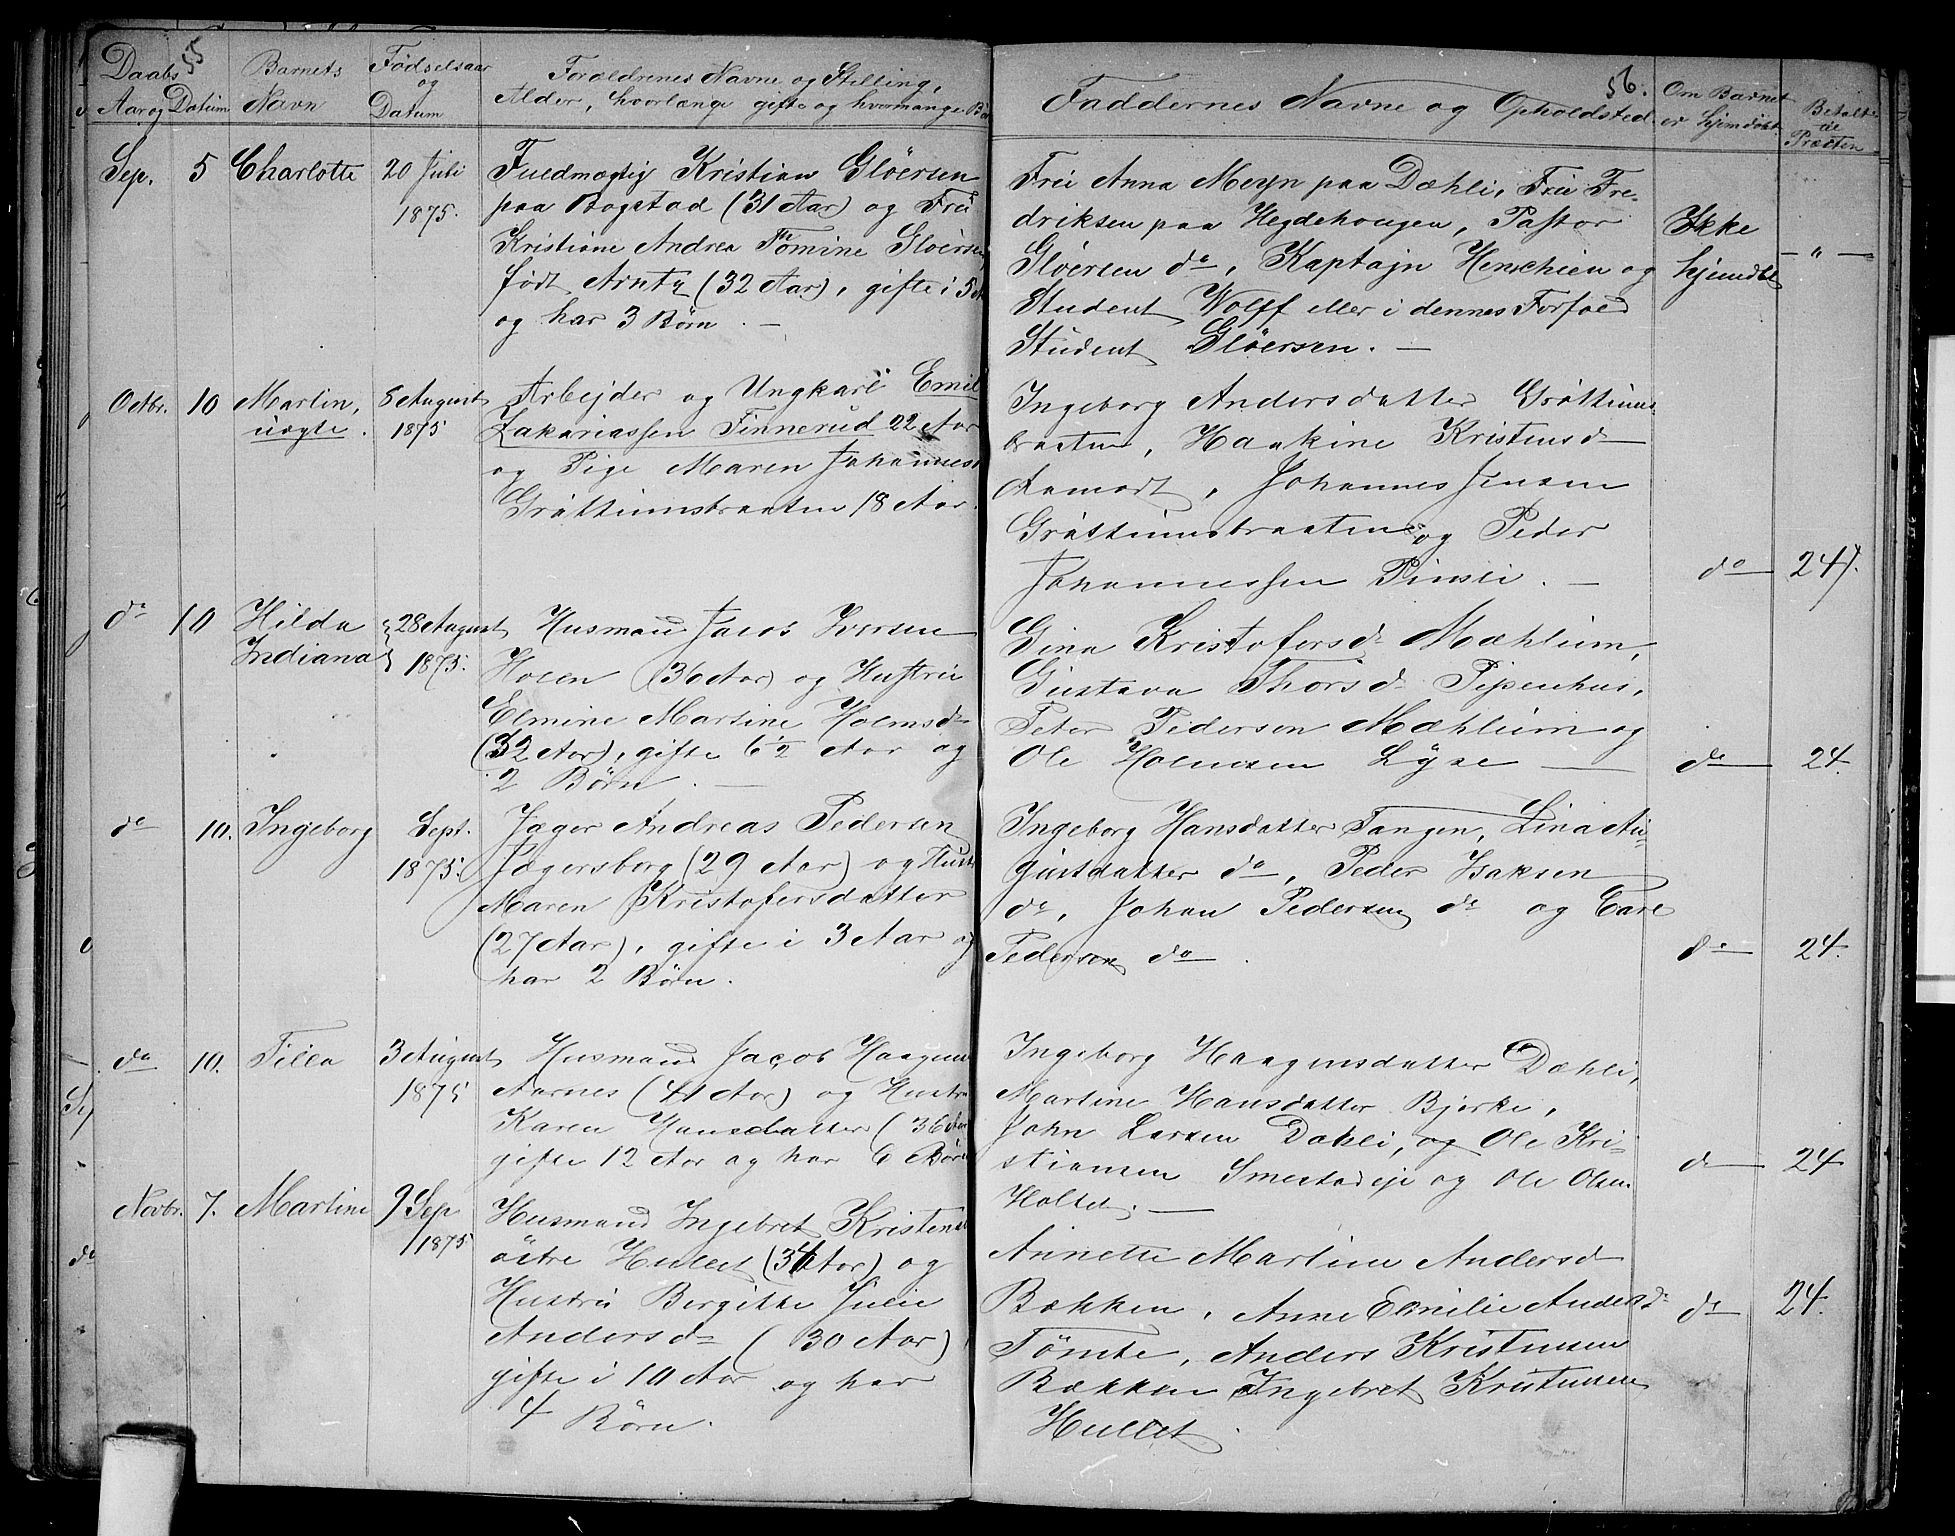 55
Daabs Aar og Datum
Barnets Navn
Fødselsaar og Datum
Forældrenes Navne og Stilling,
Alder, hvorlænge gifte og hvormange
Sep. 5 Charlotte 20 Juli 1875.
Fuldmægtig Kristian Gløersen
paa Bogstad (31 Aar) og Frü
Kristiane Andrea Tomine Gløersen
født Arntz (32 Aar), gifte i 5
og har 3 Børn. —
Octbr. 10 Martin, uægte. 8 August 1875
Arbejder og Ungkarl Emil
Zakariassen Finnerud 22 Aar
og Pige Maren Johannesd
Grøttumsbraaten 18 Aar.
do 10 Hilda Indiana 28 August 1875.
Husmand Jacob Iversen
Holen (36 Aar) og Hustru
Elmine Martine Holmsd
(32 Aar), gifte 6 1/2 Aar og
2 Børn. —
do 10. Ingeborg Sept. 1875.
Jæger Andreas Pedersen
Jægersborg (29 Aar) og Hust
Maren Kristofersdatter
(27 Aar), gifte i 3 Aar og
har 2 Børn.
do 10. Tilla 3 August 1875
Husmand Jacob Haagens
Aarnes (41 Aar) og Hustru
Karen Hansdatter (36 Aar
gifte 12 Aar og har 6 Børn
Novbr. 7. Martine 9 Sep 1875
Husmand Ingebret Kristens
østre Hullet (34 Aar) og
Hustru Birgitte Julie
Andersd (30 Aar)
gifte i 10 Aar og har
4 Børn.
56.
Faddernes Navne og Opholdsted
Om Barnet er hjemdøbt
Betalt til Præsten
Frü Anna Meyn paa Dæhli, Frü Fre-
driksen paa Hegdehougen, Pastor
Gløersen do, Kaptajn Henschien og
Student Wolff eller i dennes Forfald
Student Gløersen. —
Ikke hjemdbt — " —
Ingeborg Andersdatter Grøttums
braaten, Haakine Kristensd
Aamodt, Johannes Jensen
Grøttumsbraaten og Peder
Johannessen Pinsli. —
do — 24
Gina Kristofersd Mæhlum,
Gustava Thorsd Pipenhus,
Peter Pedersen Mæhlum og
Ole Holmsen Lyse —
do — 24.
Ingeborg Hansdatter Tangen, Lina Au-
gustdatter do, Peder Isaksen
do, Johan Pedersen do og Carl
Pedersen do.
do — 24.
Ingeborg Haagensdatter Dæhli,
Martine Hansdatter Bjerke,
John Larsen Dæhli, og Ole Kri-
stiansen Smestadeje og Ole Olsen
Holtet. —
do — 24
Annette Martine Andersd
Bækken, Anne Emilie Andersd
Tømte, Anders Kristensen
Bækken Ingebret Kristensen
Hullet.
do — 24.